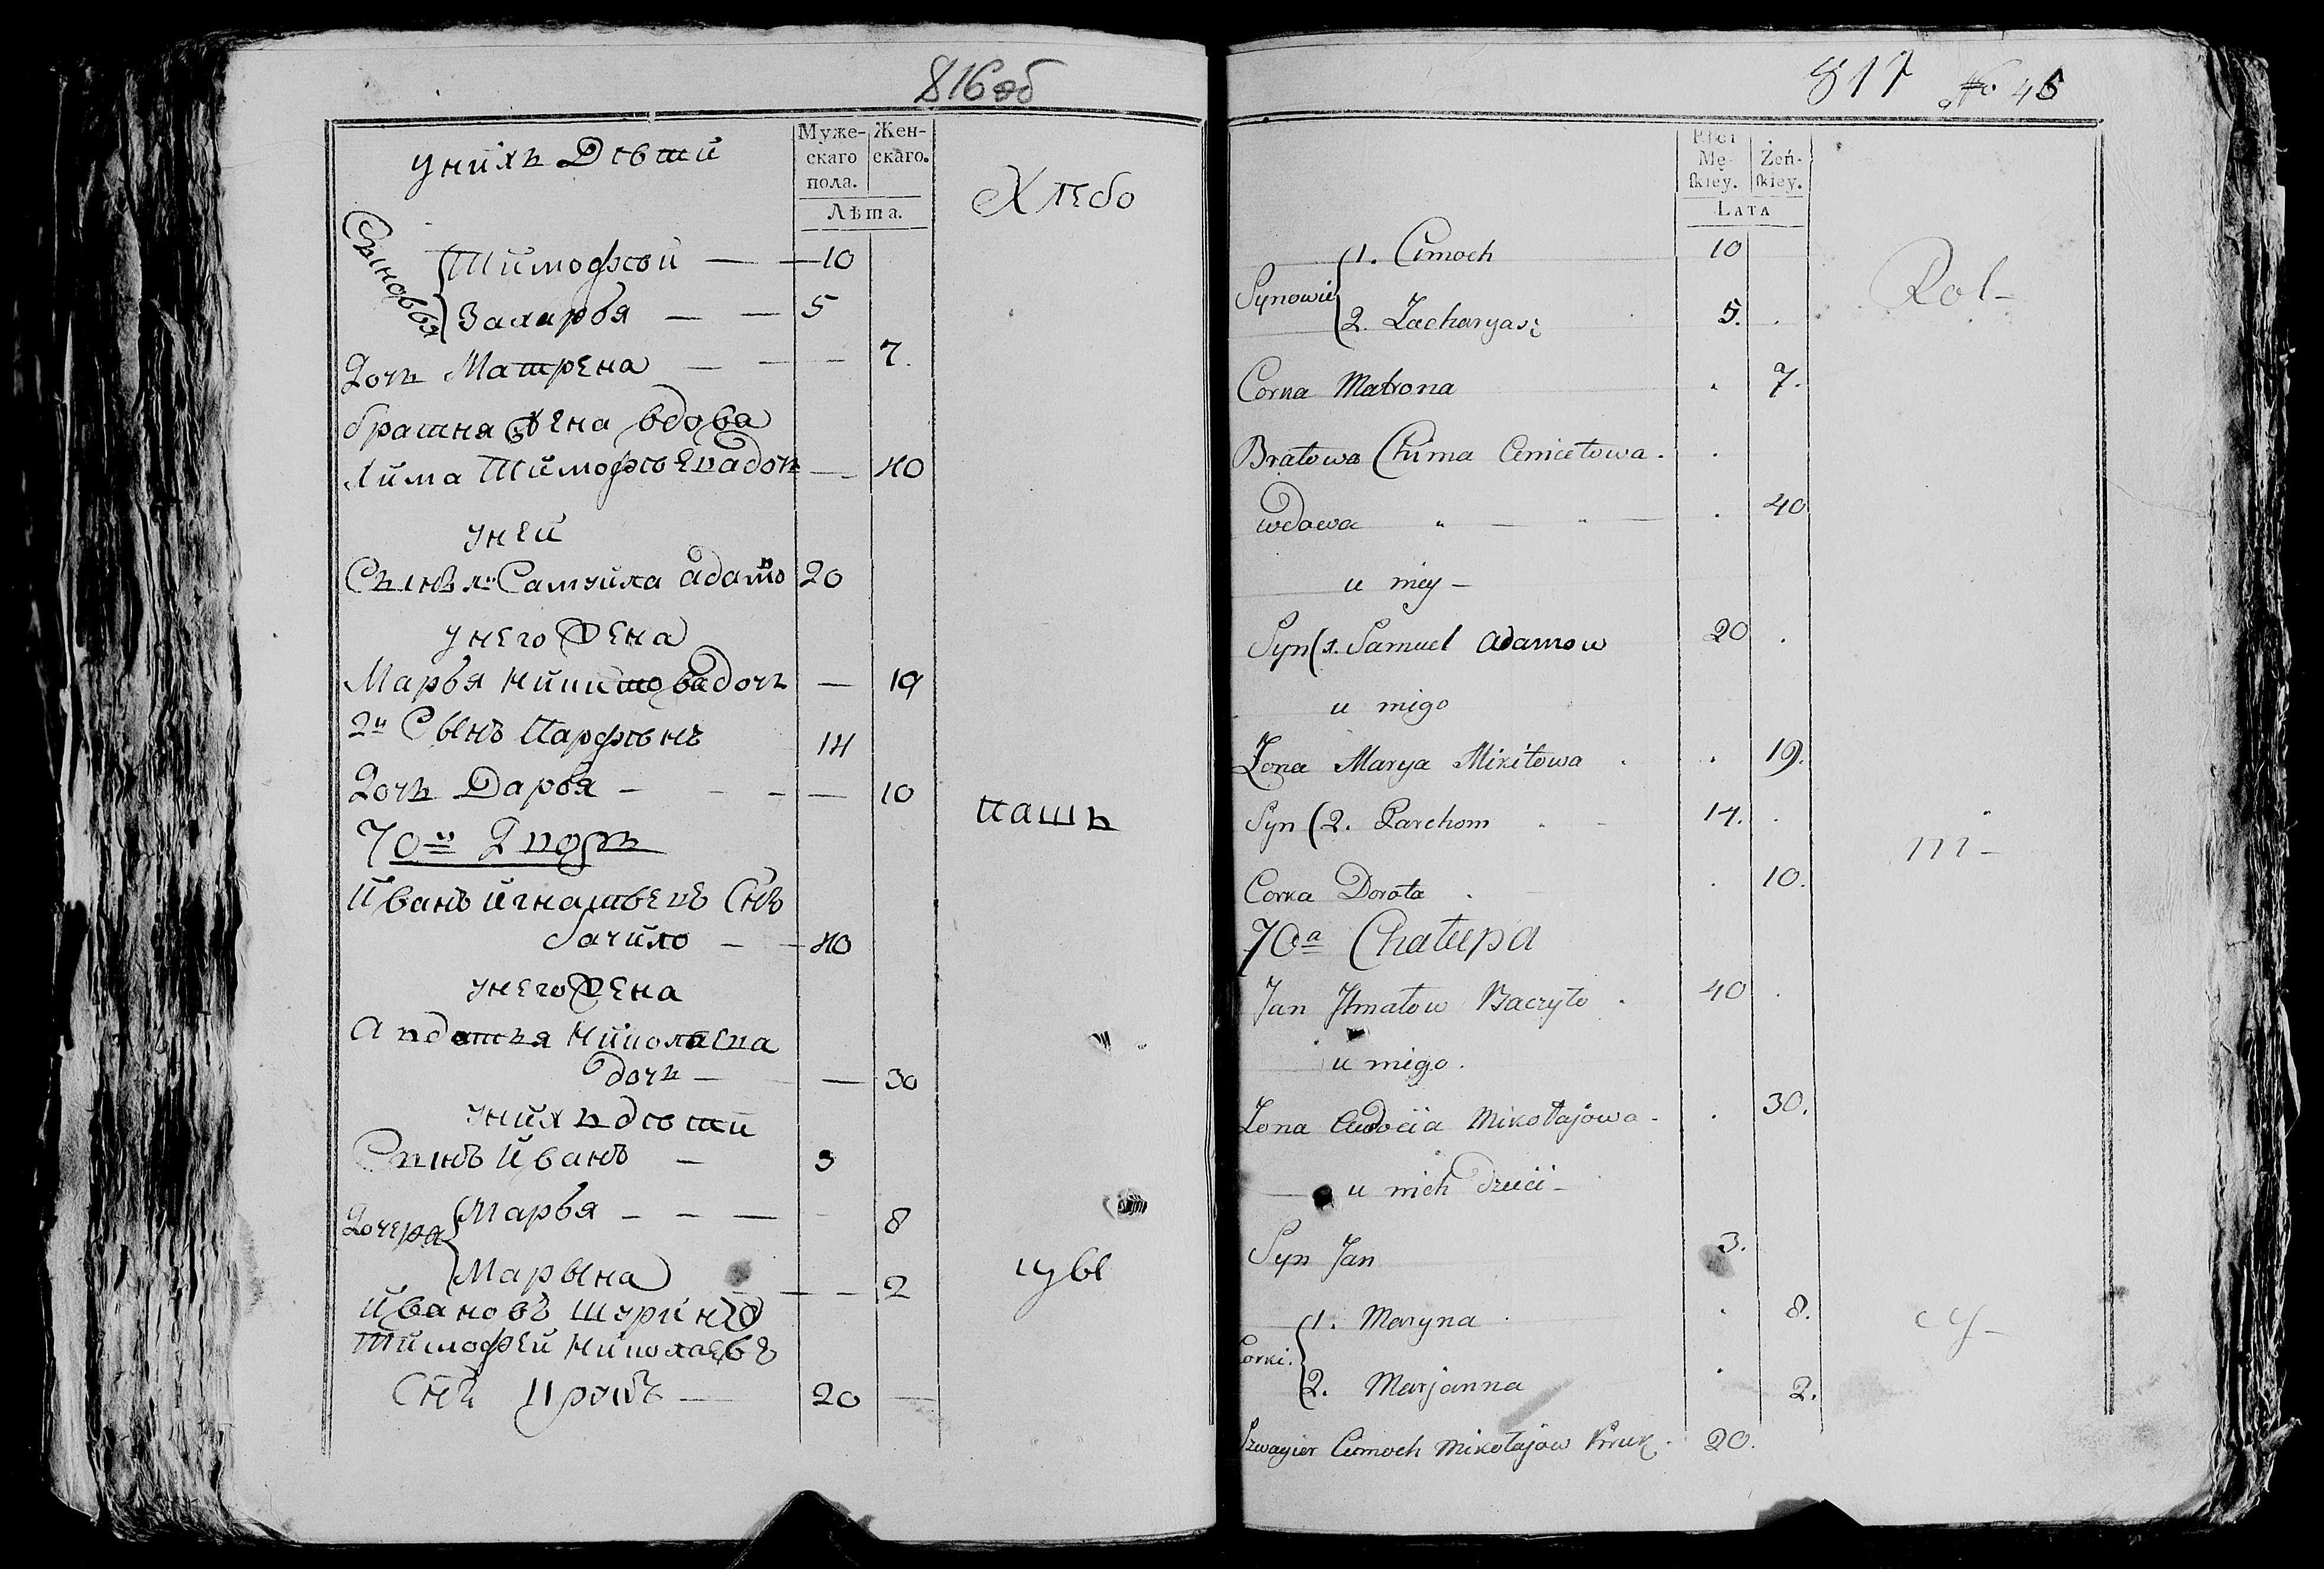 816 об
Мужескаго пола.
Женскаго.
Лѣта.
у нихъ Дѣти
Хлебо
Сыновья
Тимофѣй — 10
Захарья — — 5
Дочь Матрена — — — 7.
братня жена вдова
Хима Тимофѣева дочь — 40
у ней
Сынъ 1й Самуйла Адамо[в] 20
у него жена
Марья Никитова дочь — 19
2й Сынъ Парфѣнъ 14
Дочь Дарья — — — 10
пашъ
70й Дворъ
Иванъ Игнатьевъ Снъ
Бачило — 40
у него жена
Авдотья Николаева
дочь — — 30
у нихъ дѣти
Сынъ Иванъ — 3
Дочеря
Марья — — — 8
Марьяна — — 2
цы
Ивановъ шуринъ
Тимофей Николаевъ
Снъ Прукъ — 20 —
817 № 45
Płci Męſkiey.
Żeńſkiey.
Lata
Synowie
1. Cimoch 10
Rol-
2. Zacharyasz 5.
Corka Matrona 7.
Bratowa Chima Cimietowa.
wdowa 40
u niey -
Syn (1. Samuel Adamow 20
u niego
Zona Marya Mikitowa 19.
Syn (2. Parchom 14.
ni-
Corka Dorota 10.
70a Chałupa
Jan Ihnatow Baczyło 40
u niego.
Zona Audocia Mikołajowa 30.
u nich dzieci -
Syn Jan 3.
Corki.
1. Maryna 8.
cy-
2. Marjanna 2.
Szwagier Cimoch Mikołajow Pruk. 20.